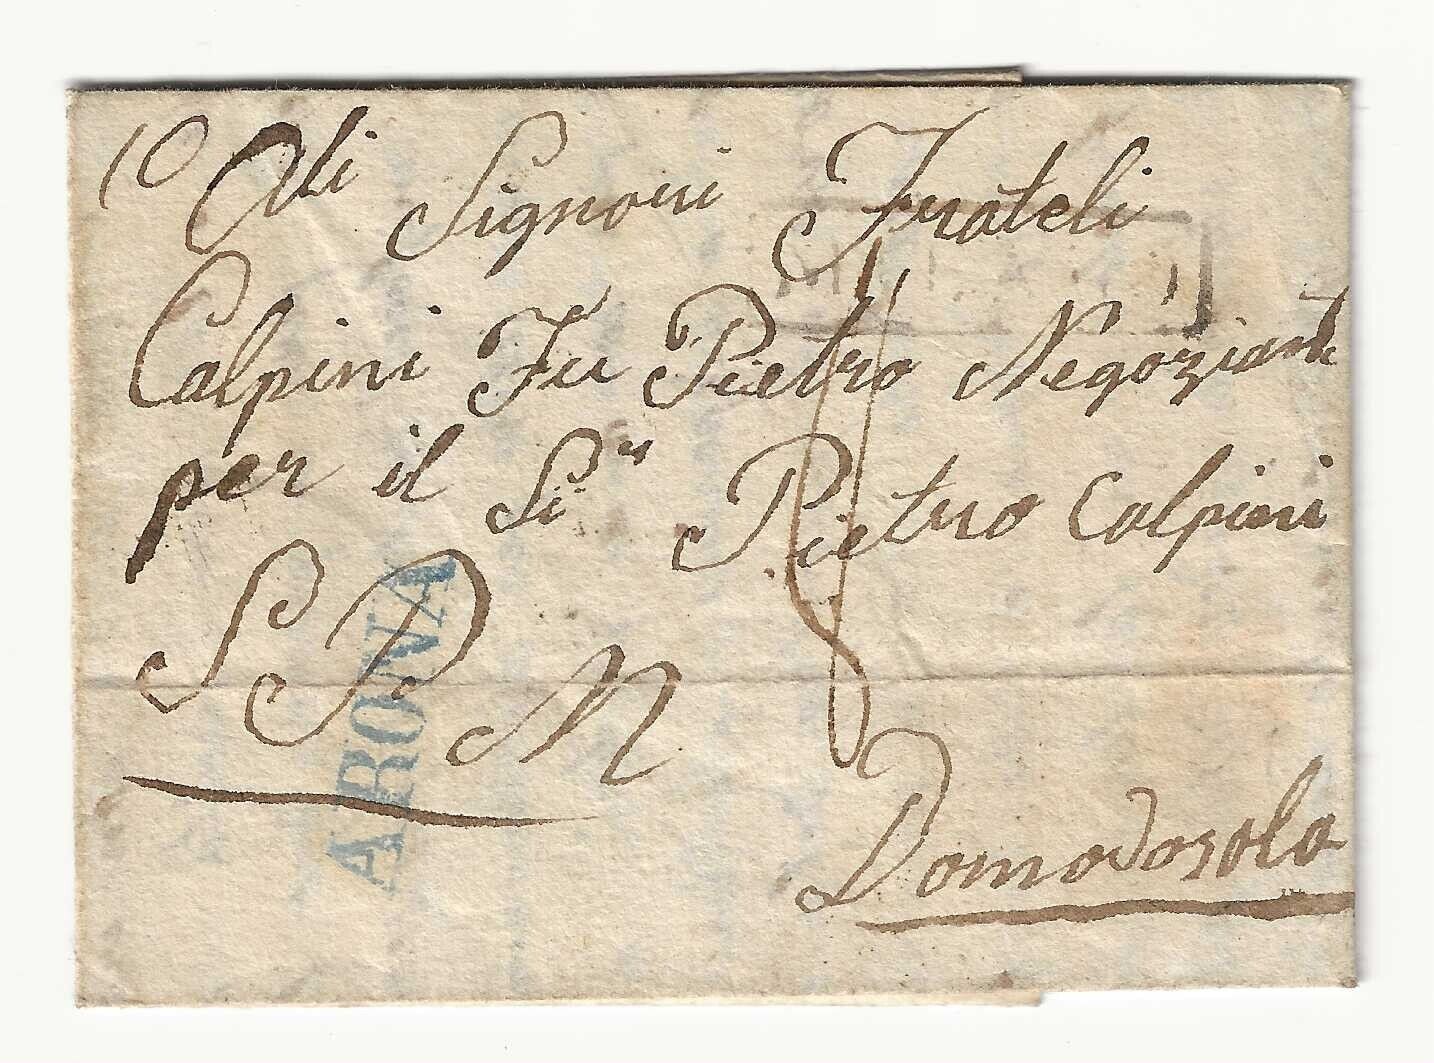 10 Ali Signori Frateli
Calpini Fu Pietro Negoziant
per il Sir Pietro Calpini
S P M
ARONA
Domodosola